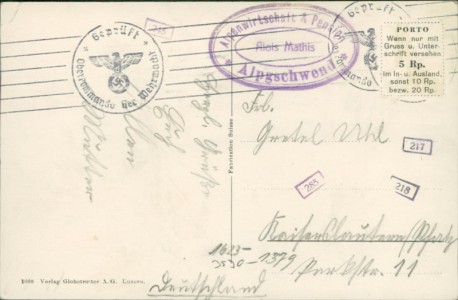 285
Geprüft
Oberkommando der Wehrmacht
Alpenwirtschaft & Pension
Alois Mathis
Alpgschwend
Geprüft
PORTO
Wenn nur mit
Gruss u. Unter-
schrift versehen
5 Rp.
im In- u. Ausland,
sonst 10 Rp.
bezw. 20 Rp.
Grüße
Mutter
Fabrication Suisse
Frl.
Gretel Uhl
217
285
218
Kaiserslautern/Pfalz
Parkstr. 11
1623-
3530-1379
Deutschland
Verlag Globetrotter A. G. Luzern.